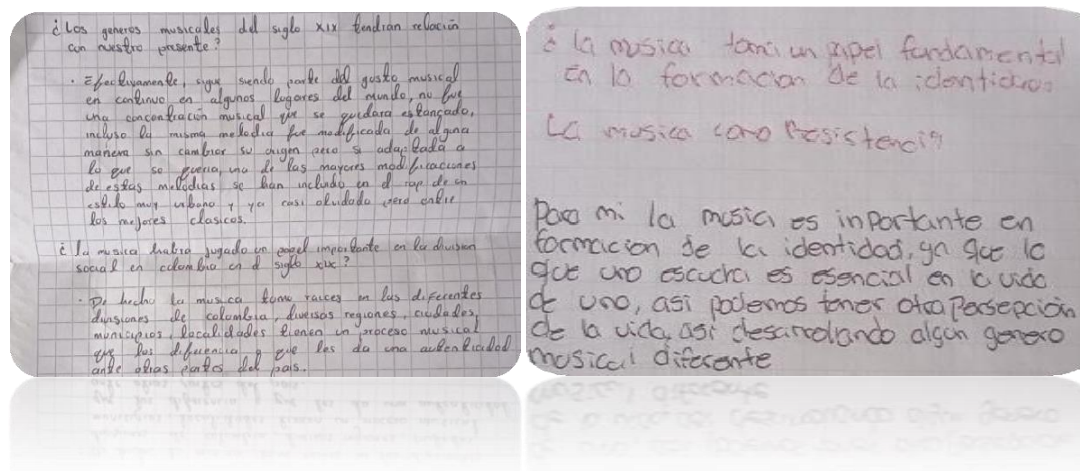 ¿Los generos musicales del siglo XIX tendrian relación
con nuestro presente?
· Efectivamente, sigue siendo parte del gusto musical
en continuo en algunos lugares del mundo, no fue
una concentración musical que se quedara estancado,
incluso la misma melodia fue modificada de alguna
manera sin cambiar su origen pero si adaptada a
lo que se queria, una de las mayores modificaciones
de estas melodias se han incluido en el rap de un
estilo muy urbano y ya casi olvidado pero entre
los mejores clasicos.
¿la musica habra jugado un papel importante en la division
social en colombia en el siglo XIX?
· De hecho la musica tomo raices en las diferentes
divisiones de colombia, diversas regiones, ciudades,
municipios, localidades tienen un proceso musical
que las diferencia y que les da una autenticidad
ante otras partes del pais.
¿la musica toma un papel fundamental
en la formacion de la identidad
La musica como Resistencia
Para mi la musica es inportante en
formacion de la identidad, ya que lo
que uno escucha es esencial en la vida
de uno, asi podemos tener otra persepción
de la vida, asi desarrolando algun genero
musical diferente